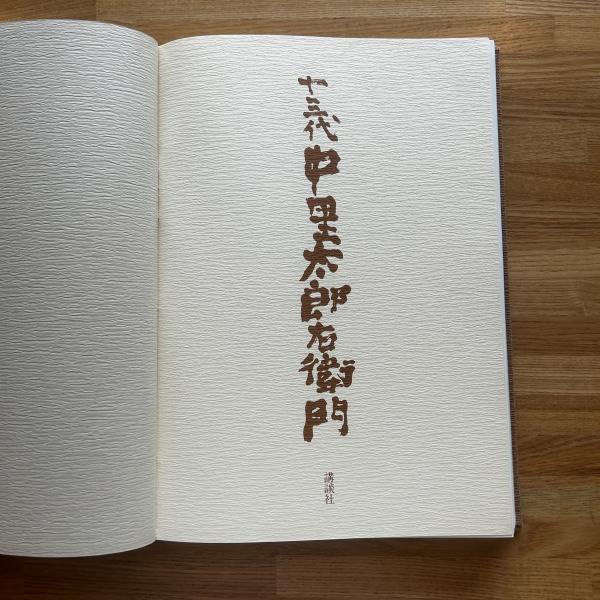 十三代中里太郎右衛門
講談社